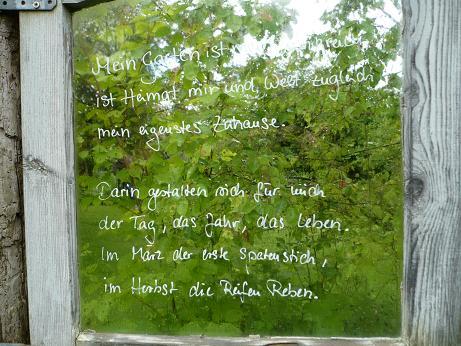 Mein Garten ist
ist Heimat mir und Welt zugleich
mein eigenstes Zuhause.
Darin gestalten sich für mich
der Tag, das Jahr, das Leben.
Im März der erste Spatenstich,
im Herbst die Reifen Reben.